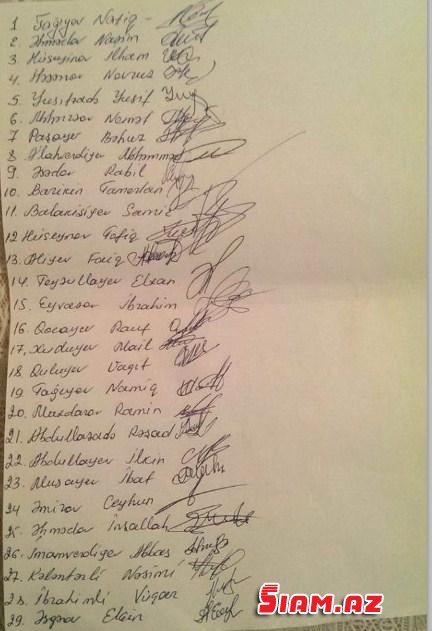 1. Tağıyev Natiq -
2. Əhmədov Nasim
3 Hüseynov İlham
4. Həsənov Novruz
5 Yusifzadə Yusif
6. Əhmədov Nemət
7 Paşayev
8 Allahverdiyev Məhəmməd
9. Əsədov Rahil
10. Tamerlan
11. Samir
12 Hüseynov Tofiq
13. Əliyev Faiq
14. Feyzullayev Elxan
15. Eyvazov İbrahim
16. Qocayev Rauf
17. Xuduyev Mail
18 Quluyev Vaqif
19 Tağıyev Namiq
20. Ramin
21. Abdullazadə Rəşad
22. Abdullayev İlkin
23. Musayev
24 Əmirov Ceyhun
25. Əhmədov İnşallah
26. İmamverdiyev Abbas
27. Kələntərli Nəsimi
28. İbrahimli Vüqar
29. Əsgərov Elçin
SIAM.AZ